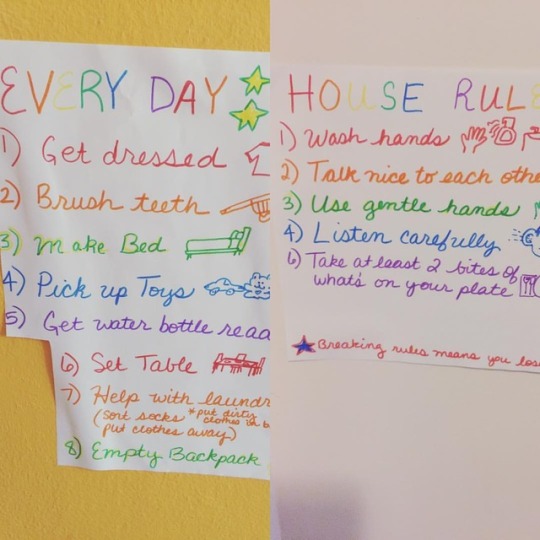 EVERY DAY
1) Get dressed
2) Brush teeth
3) Make Bed
4) Pick up Toys
5) Get water bottle read
6) Set Table
7) Help with laundr
(sort socks *put dirty clothes in b
put clothes away)
8) Empty Backpack
HOUSE RULE
1) Wash hands
2) Talk nice to each othe
3) Use gentle hands
4) Listen carefully
6) Take at least 2 bites of
what's on your plate
Breaking rules means you lose